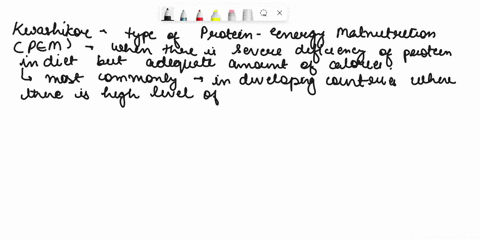 Kwashikor → type of Protein-energy Malnutrition
(PEM) → when there is severe deficiency of protein
in diet but adequate amount of calories.
↳ most commonly → in developing countries where
there is high level of